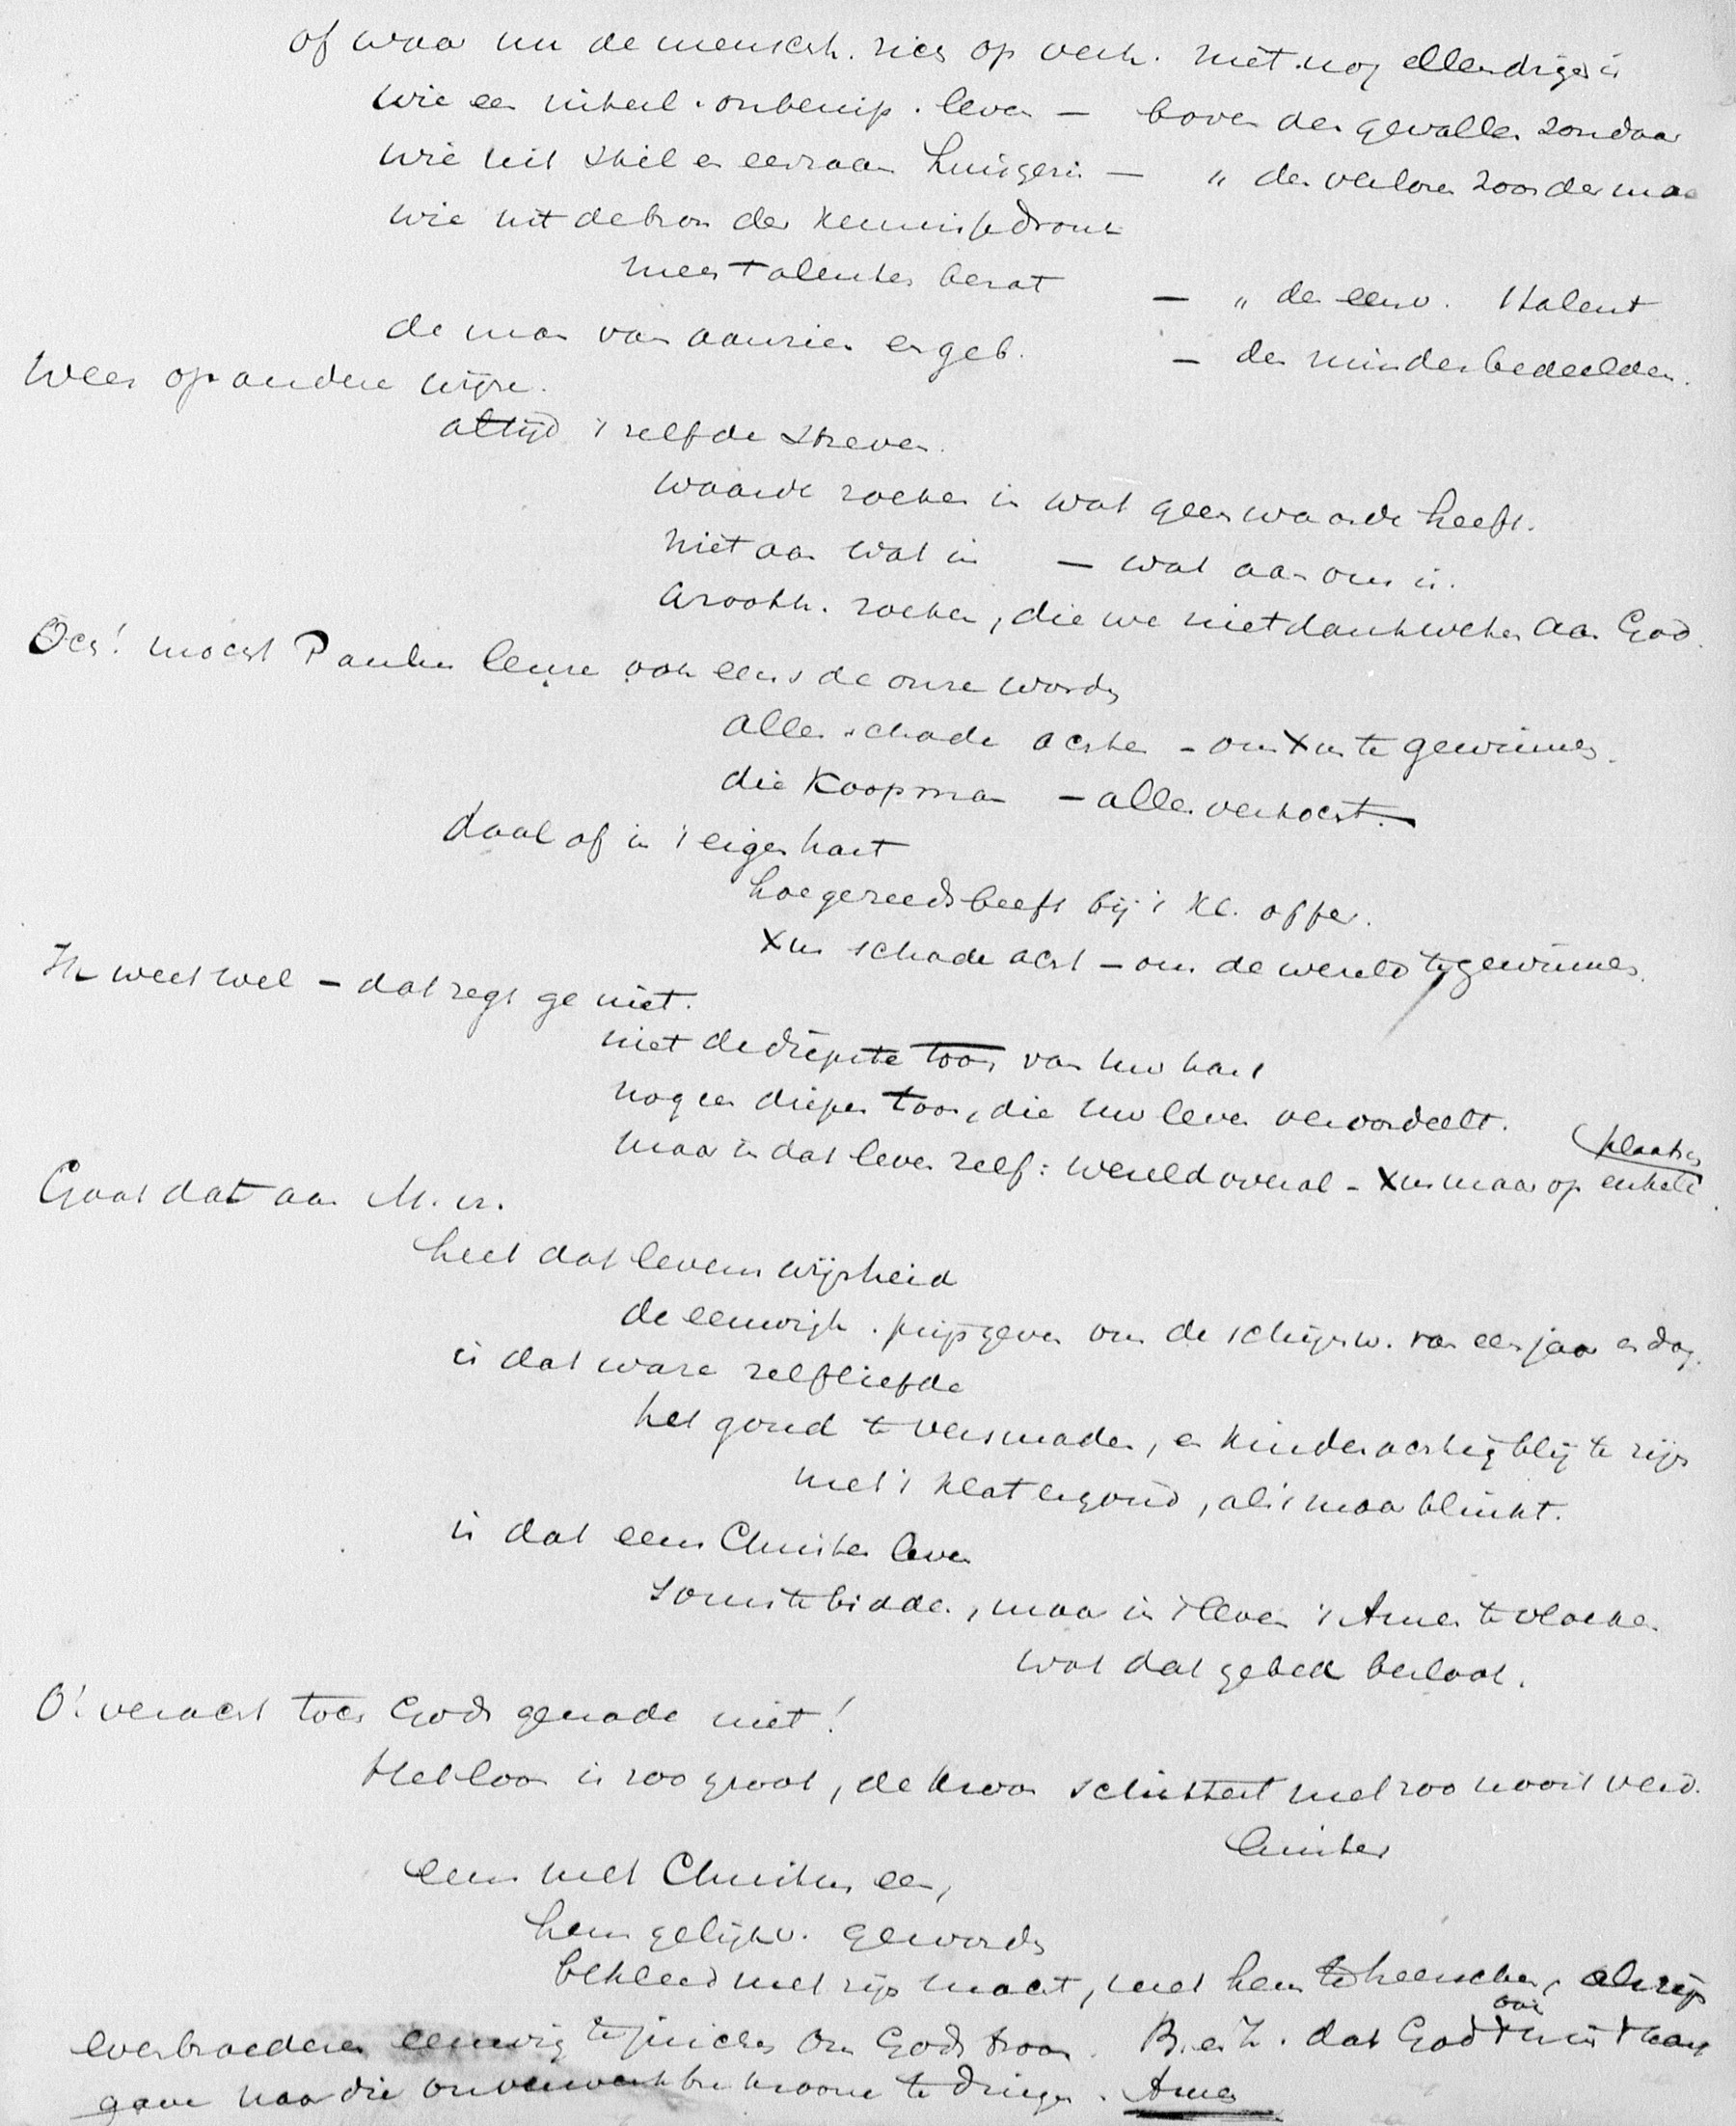 of waar nu de mensch. zich op verh. niet nog ellendiger is
wie een uiterl. onberisp. leven — boven den gevallen zondaar
wie uit stil en eerzaam huisgezin — „ den verloren zoon der maa
wie uit de bron der kennis dronk
meer talenten bezat — „ den eenv. 1 talent
de man van aanzien en geb. — den minderbedeelden.
Weer op andere wijze.
altijd 't zelfde streven.
waarde zoeken in wat geen waarde heeft.
niet aan wat in — wat aan ons is.
Grooth. zoeken, die we niet dank weten aan God.
Och! mocht Paulus leuze ook eens de onze worden
alles schade achten - om Xus te gewinnen.
die Koopman — alles verkocht.
daal af in 't eigen hart
hoe gereeds beeft bij 't kl. offer.
Xus schade acht — om de wereld te gewinnen.
Ik weet wel — dat zegt ge niet.
niet de diepste toon van uw hart
nog een dieper toon, die uw leven veroordeelt.
maar in dat leven zelf: wereld overal - Xus maar op enkele
plaatsen
Gaat dat aan M. vr.
heet dat levenswijsheid
de eeuwigh. prijsgeven om de schijnw. van een jaar en dag.
is dat ware zelfliefde
het goud te versmaden, en kinderachtig blij te zijn
met 't klatergoud, als 't maar blinkt.
is dat een Christen leven
soms te bidden, maar in 't leven 't Amen te vloeken
wat dat gebed besloot.
O! veracht toch Gods genade niet!
Het loon is zoo groot, de kroon schittert met zoo nooit verd.
luister
eens met Christus een,
hem gelijkv. geworden
bekleed met zijn macht, met hem te heerschen, als zijn
evenbroederen eeuwig te juichen om Gods troon. B. en Z. dat God ook
gave naar die onverwelkbre kroone te dingen. Amen